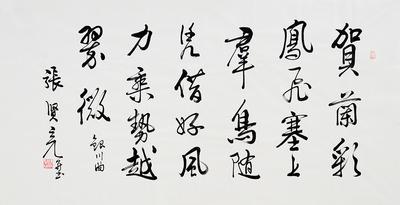 賀蘭彩
鳳飛塞上
羣鳥随
凭借好風
力乘勢越
翠微
銀川曲
張賢亮